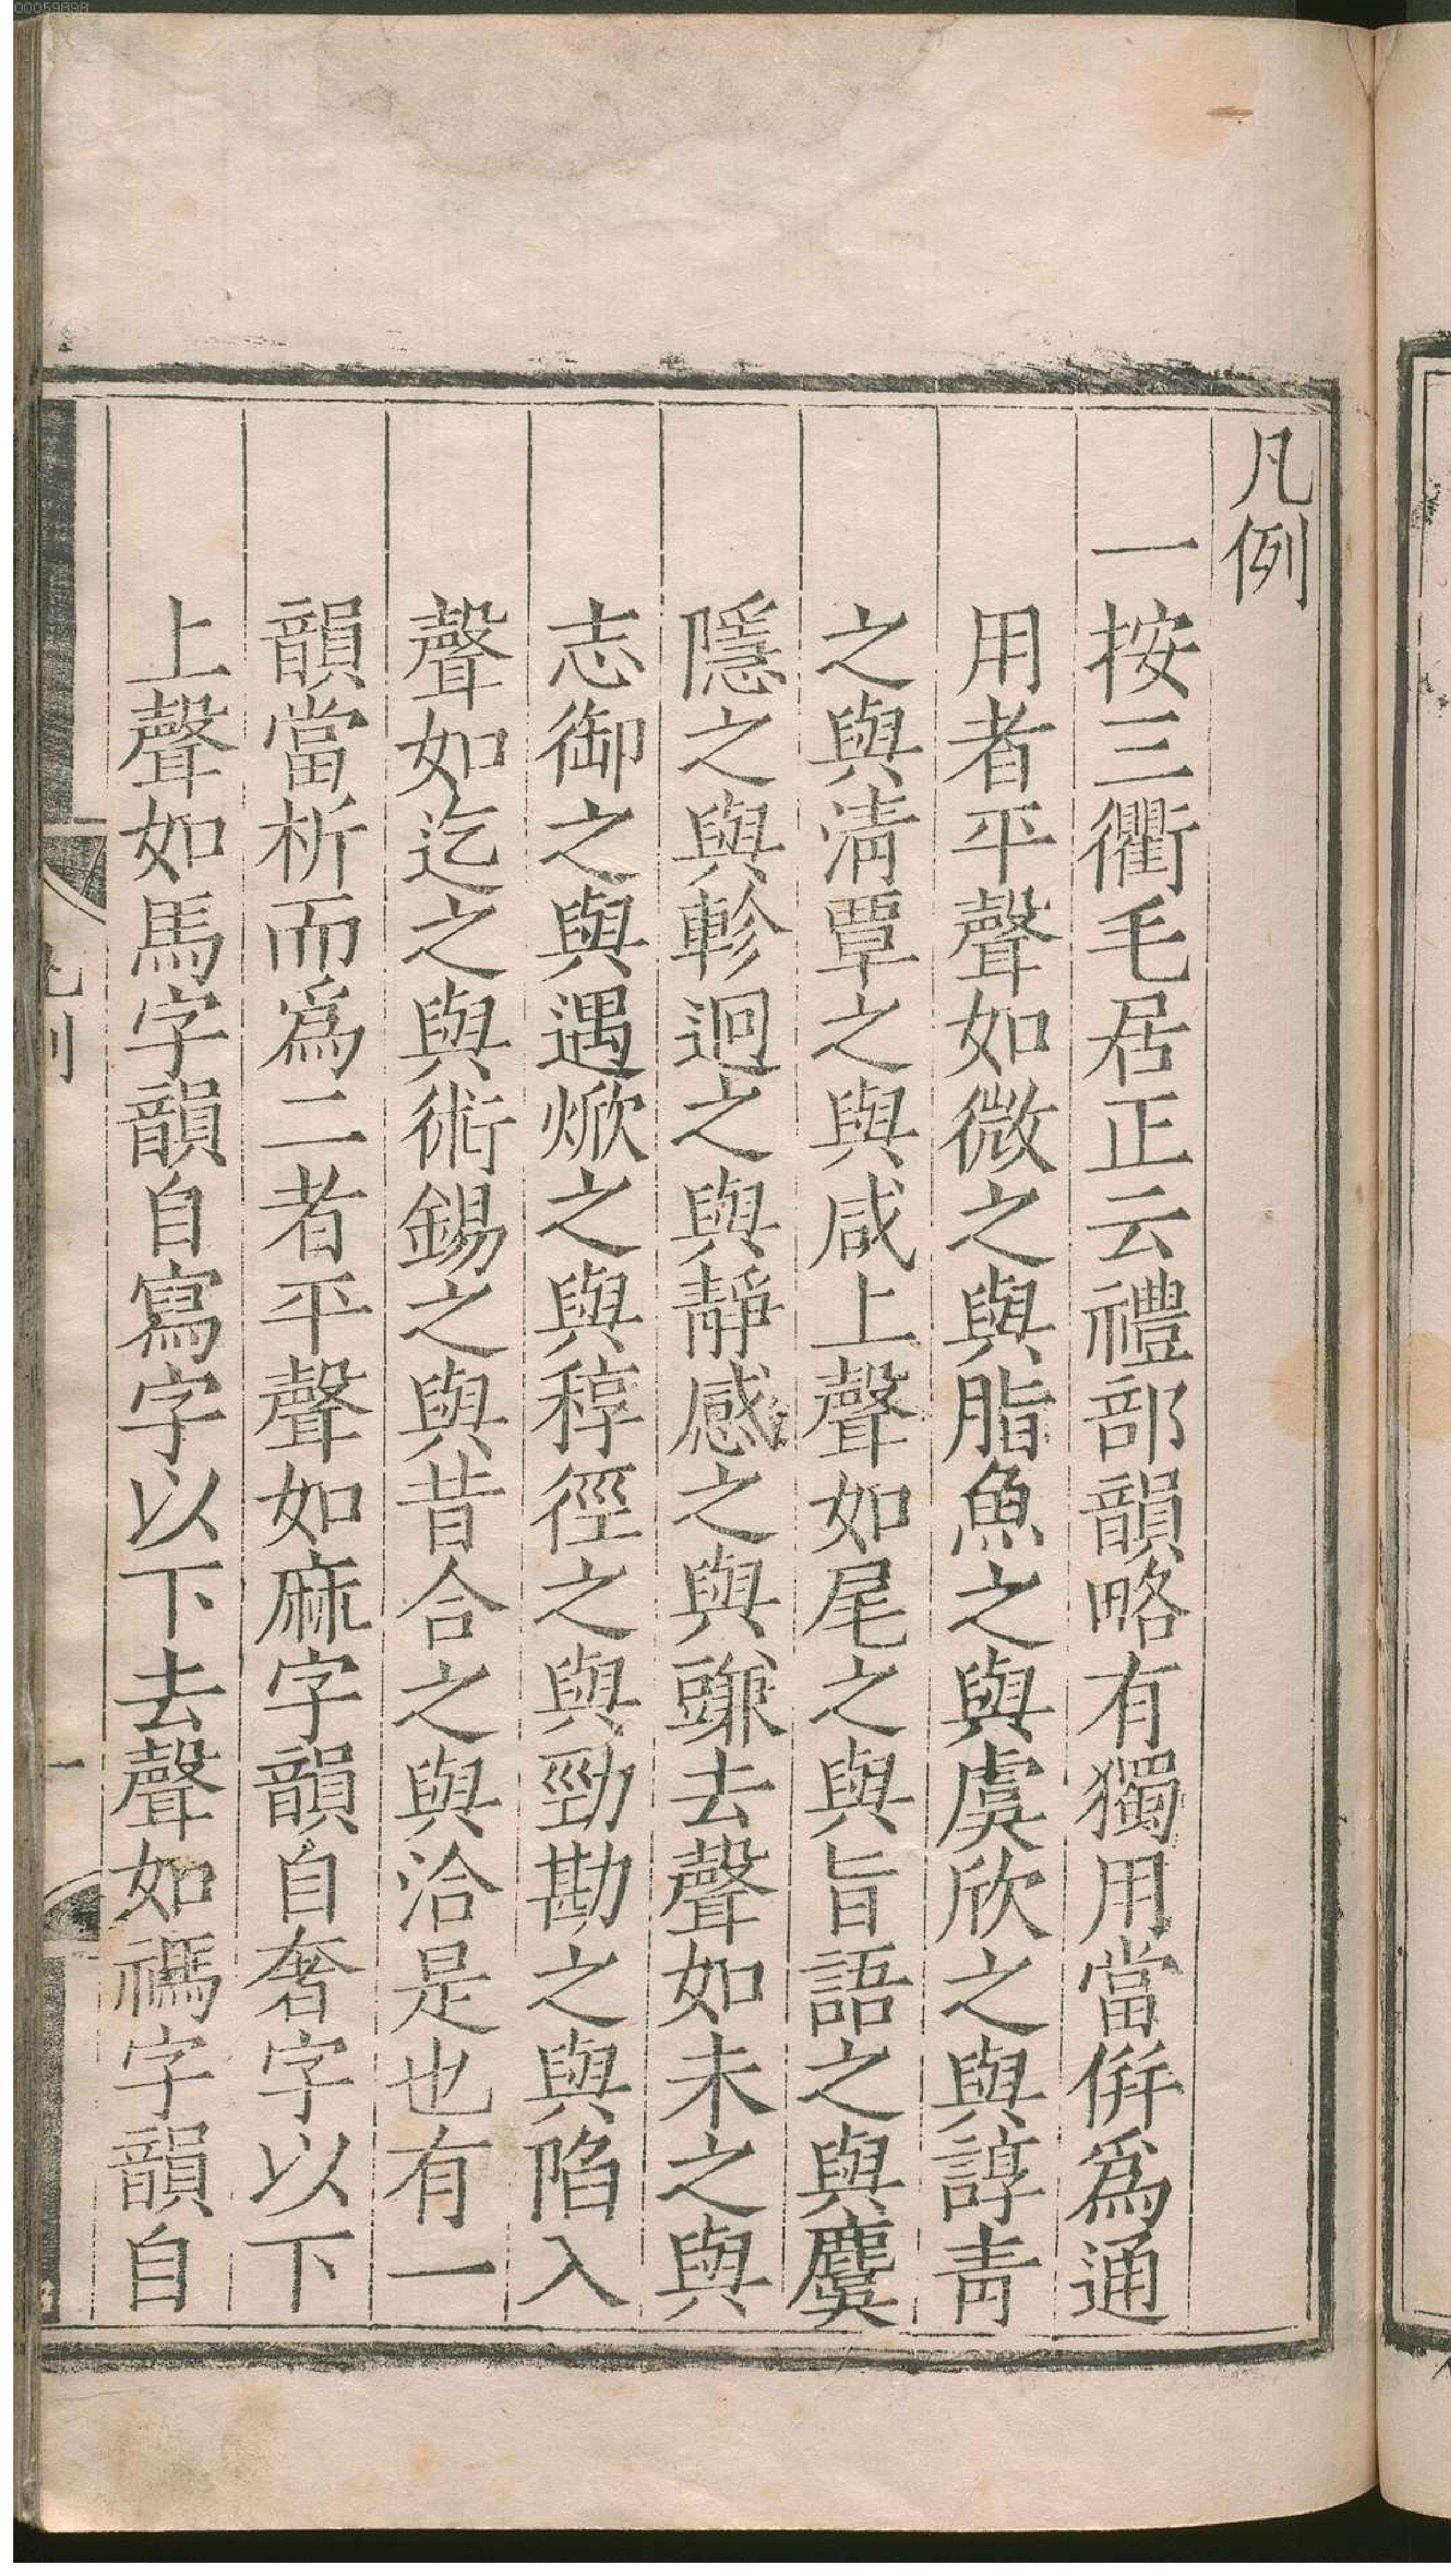 凡例
一按三衢毛居正云禮部韻略有獨用當倂爲通
用者平聲如微之與脂魚之與虞欣之與諄靑
之與淸覃之與咸上聲如尾之與旨語之與麌
隱之與軫迥之與靜感之與豏去聲如未之與
志御之與遇焮之與稕徑之與勁勘之與陷入
聲如迄之與術錫之與昔合之與洽是也有一
韻當析而爲二者平聲如麻字韻自奢字以下
上聲如馬字韻自寫字以下去聲如禡字韻自
一
00059898